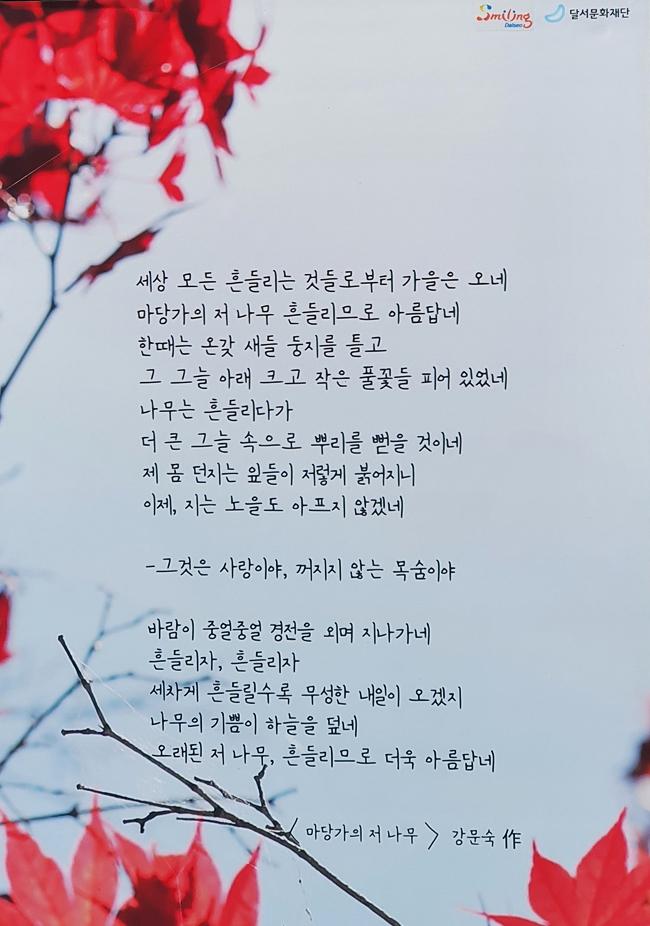 Smiling
Dalseo
달서문화재단
세상 모든 흔들리는 것들로부터 가을은 오네
마당가의 저 나무 흔들리므로 아름답네
한때는 온갖 새들 둥지를 틀고
그 그늘 아래 크고 작은 풀꽃들 피어 있었네
나무는 흔들리다가
더 큰 그늘 속으로 뿌리를 뻗을 것이네
제 몸 던지는 잎들이 저렇게 붉어지니
이제, 지는 노을도 아프지 않겠네
-그것은 사랑이야, 꺼지지 않는 목숨이야
바람이 중얼중얼 경전을 외며 지나가네
흔들리자, 흔들리자
세차게 흔들릴수록 무성한 내일이 오겠지
나무의 기쁨이 하늘을 덮네
오래된 저 나무, 흔들리므로 더욱 아름답네
〈 마당가의 저 나무 〉 강문숙 作